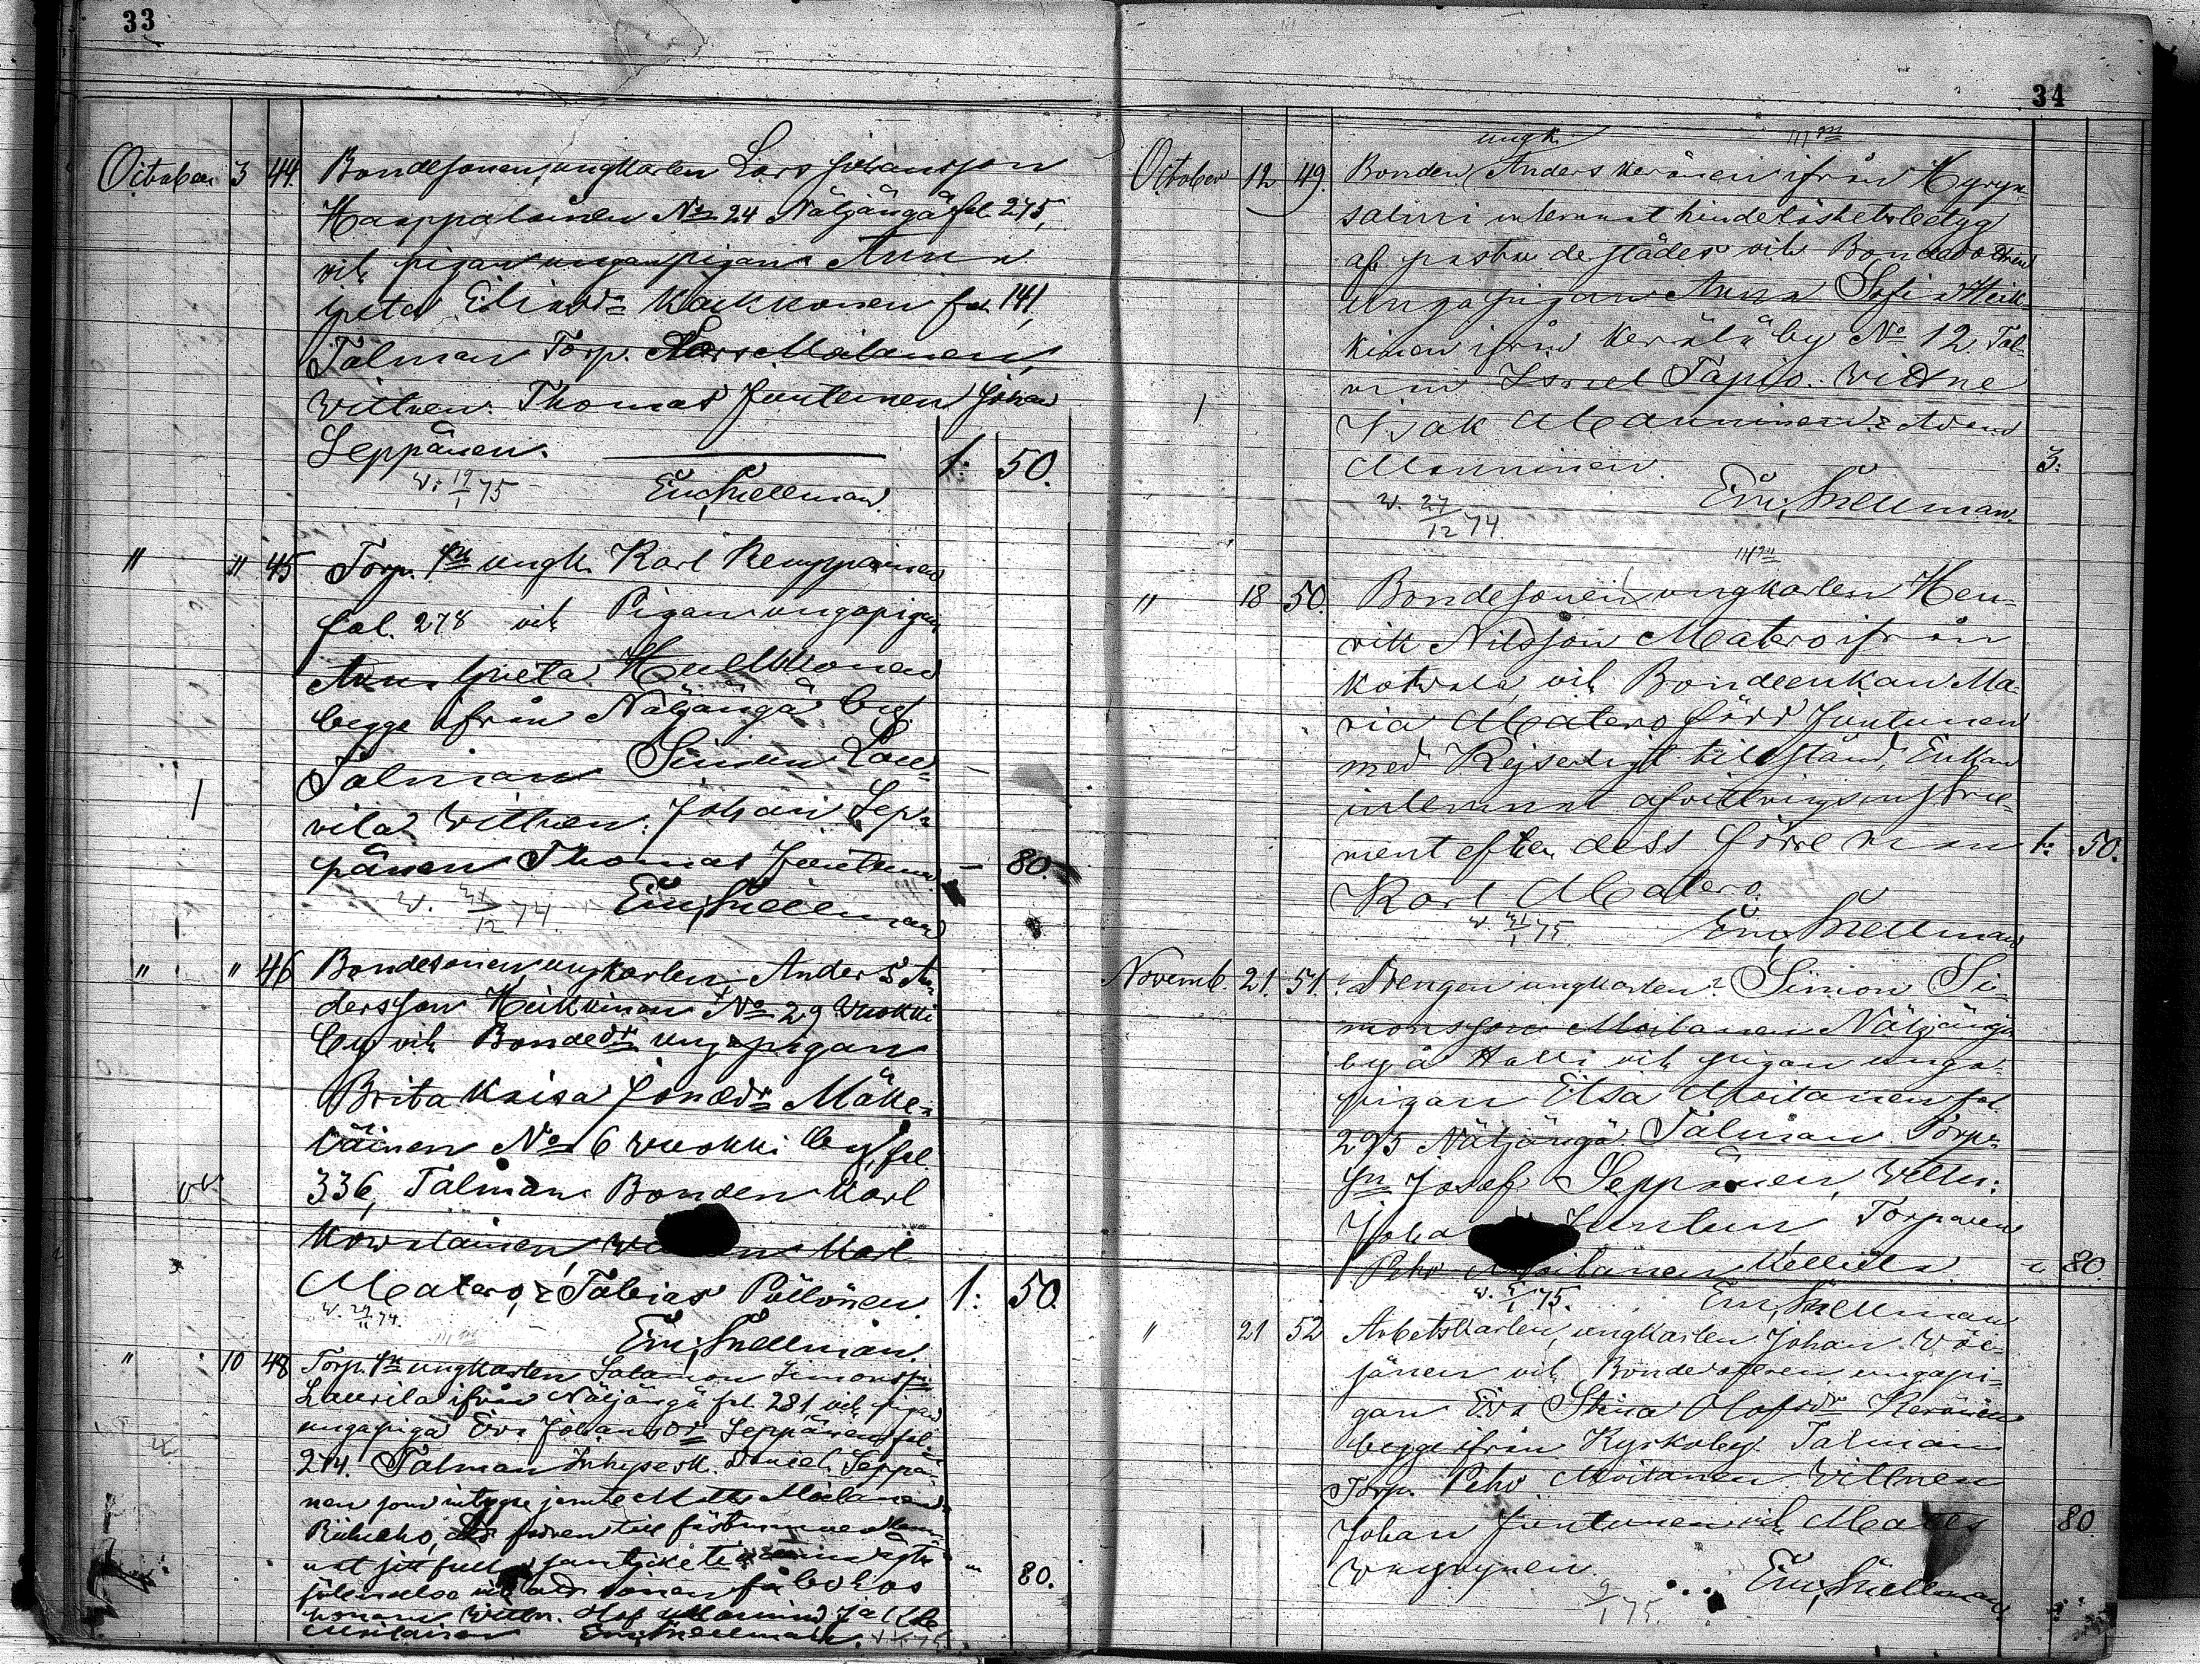 33
October 3 44. Bondesonen, ungkarlen Lars Johansson
Haapalainen No 24 Näljängä fol 275,
och pigan ungapigan Anna
Greta Eliasdr Kaikkonen fol. 141,
Talman Torp. Lars Moilanen,
Wittnen: Thomas Juntunen Johan
Seppänen. 1: 50.
w. 19/1 75 Em. Snellman
" " 45 Torp. sn ungk. Karl Kemppainen
fol. 278 och Pigan ungapigan
Anna Greta Heikkonen
begge ifrån Näljängä by
Talman Simon Lau-
rila Wittnen: Johan Sep-
pänen Thomas Juntunen - 80.
w. 31/12 74. Em. Snellman
" " 46 Bondesonen, ungkarlen, Anders An-
dersson Heikkinen No 29 Wuokki
by och Bondedr ungapigan
Brita Kaisa Jonædr Mäke-
läinen No 6 Wuokki by, fol.
336, Talman Bonden Karl
Kowalainen, Karl
Matero, & Tobias Pöllönen 1: 50.
w. 29/11 74. Em. Snellman.
" 10 48 Torp. sn ungkarlen Salomon Simonsson
Laurila ifrån Näljängä fol. 281 och pigan
ungapigan Eva Johansdr Seppänen fol.
214. Talman Inhyses k. Daniel Seppä-
nen som intyga jemte Matts Moilanen
80.
Em. Snellman.
34
ungk.
October 12 49. Bonden Anders Keränen ifrån Hyryn-
salmi inlemnat hinderlöshetsbetyg
af pastor derstädes och Bondedottren
unga pigan Anna Sofia Heik-
kinen ifrån Kerälä by No 12. Tal-
man Israel Tapio. Wittne
Isak Manninen & Adam
Manninen 3:
w. 27/12 74. Em. Snellman.
" 18 50. Bondesonen, ungkarlen Hen-
rik Nilsson Matero ifrån
Kotwala, och Bondeenkan Ma-
ria Matero född Juntunen
med Kejserligt tillstånd, Enkan
inlemnat afvittringsinstru-
ment efter dess förre man 1: 50.
Karl Matero.
w. 31/1 75. Em. Snellman
Novemb. 21. 51. Drengen ungkarlen Simon Si-
monsson Moilanen Näljängä
by å Halli och pigan unga-
pigan Elsa Moilanen fol
295 Näljängä Talman Torp-
sn Josef Seppänen, Wittn:
Torparen
Petr Moilanen 80.
75. Em. Snellman
" 21 52 Arbetskarlen, ungkarlen Johan Wäi-
sänen och Bondedottren ungapi-
gan Eva Stina Olofsdr Keränen
begge ifrån Kyrkoby. Talman
Torp. Petr Moilanen Wittnen
Johan Juntunen och Mattes 80
9/1 75. Em. Snellman